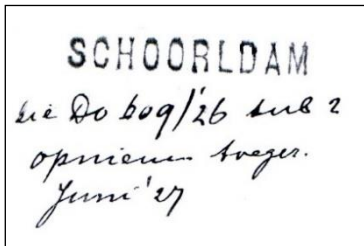 SCHOORLDAM
zie Do 609/'26 sub 2
opnieuw toeger.
Juni '27